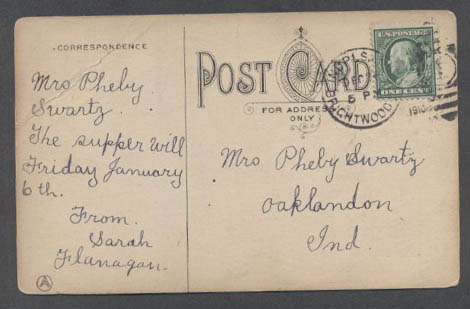 CORRESPONDENCE
Mrs Pheby
Swartz.
The supper will
Friday January
6th.
From.
Sarah
Flanagan.
A
POST CARD
FOR ADDRESS
ONLY
U.S. POSTAGE
ONE CENT
5 P
1910
Mrs Pheby Swartz
oaklandon
Ind.